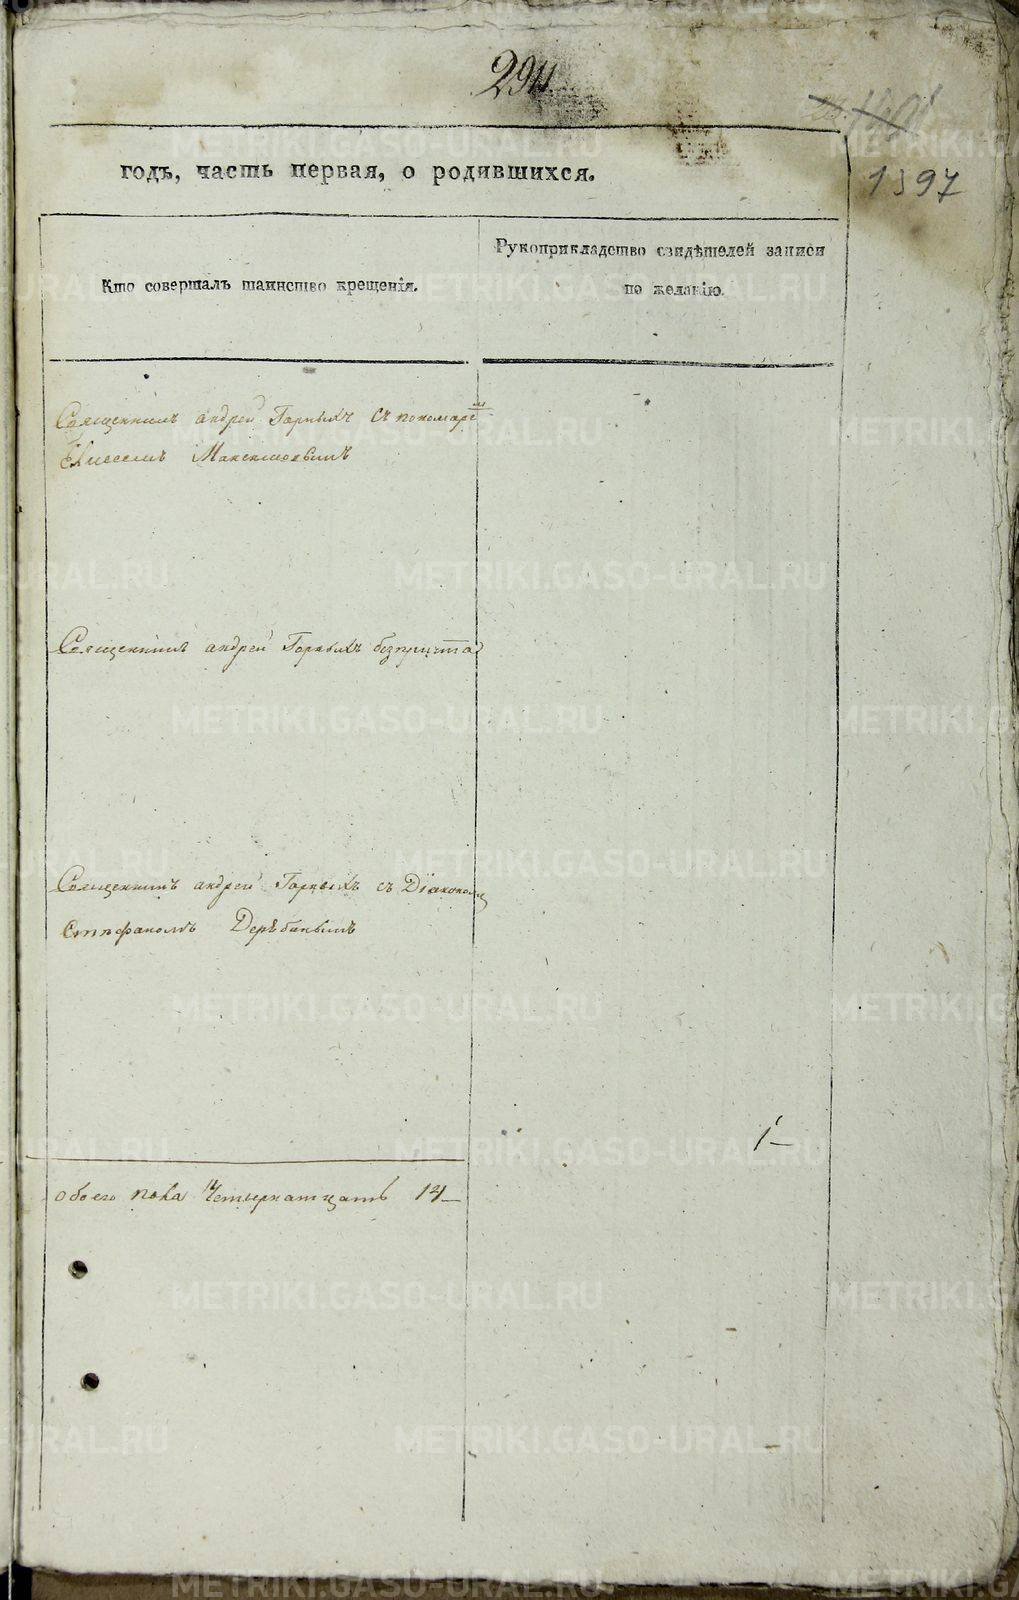 294
1397
годъ, часть первая, о родившихся.
Кто совершалъ таинство крещенія.
Рукоприкладство свидѣтелей записи
по желанію.
Священникъ андрей Горныхъ съ пономаремъ
Максимовымъ
Священникъ андрей Горныхъ безпричта
Священникъ андрей Горныхъ съ Діакономъ
Стефаномъ Дерѣбинымъ
1
обоего пола Четырнатцать 14
METRIKI.GASO-URAL.RU